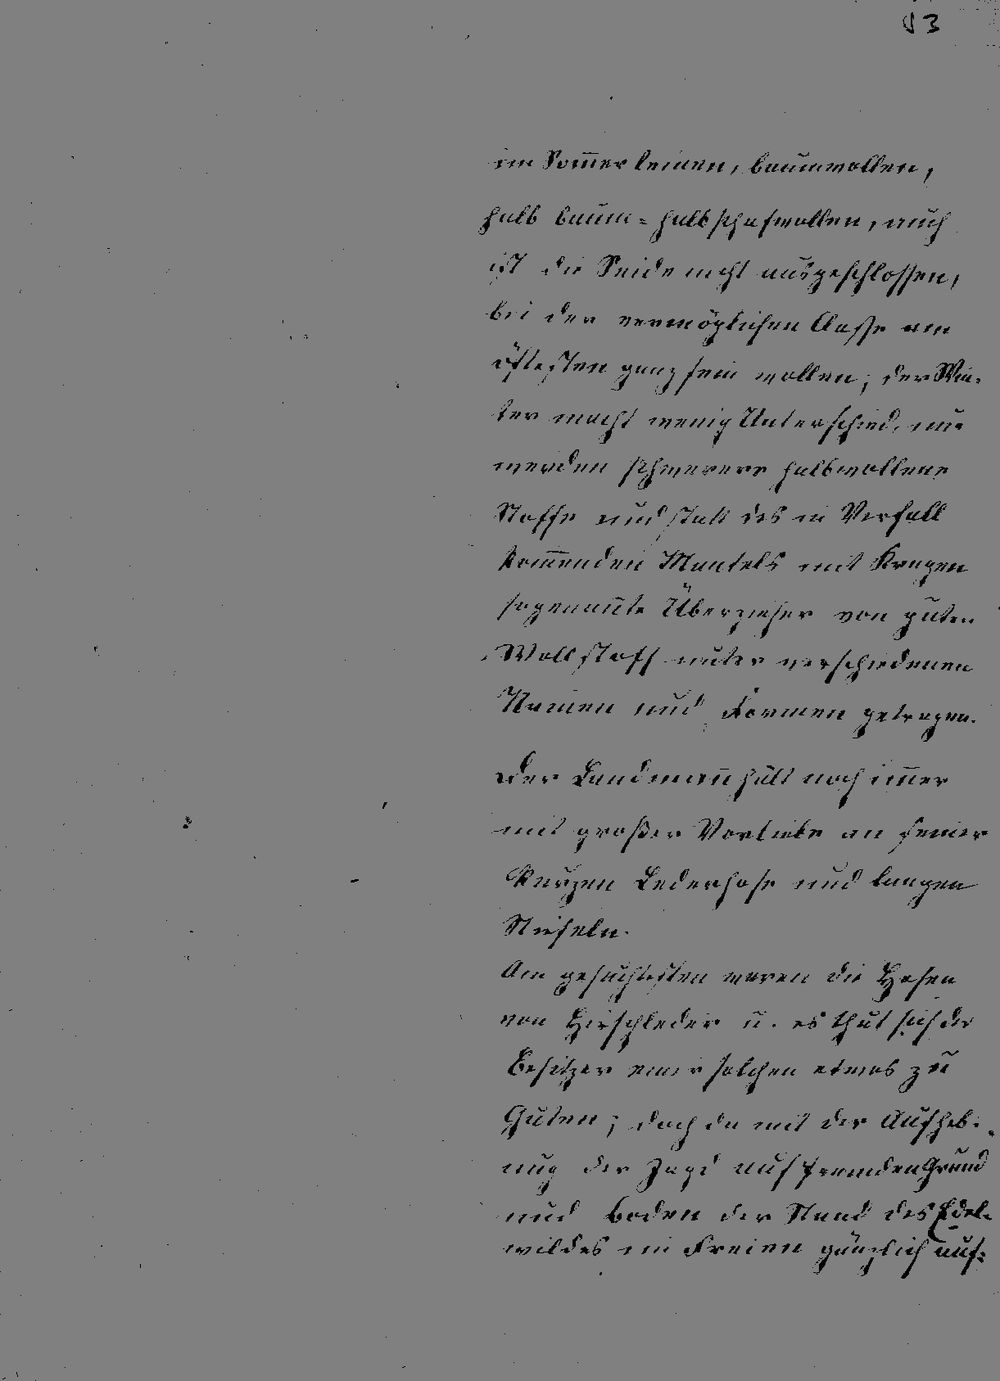 im Som̅er leinen, baumwollen,
halb baum= halb schafwollen, auch
ist die Seide nicht ausgeschlossen,
bei der vermöglichen Classe am
öftesten ganz fein wollen; der Win-
ter macht wenig Unterschied, nur
werden schwerere halbwollene
Stoffe und statt des in Verfall
kom̅enden Mantels mit Kragen
sogenan̅te Überzieher von guten
Wollstoff unter verschiedenen
Namen und Formen getragen.
Der Landman̅ hält noch im̅er
mit großer Vorliebe an seiner
kurzen Lederhose und langen
Stiefeln.
Am gesuchtesten waren die Hosen
von Hirschleder u. es thut sich der
Besitzer einer solchen etwas zu
Guten; doch da mit der Aufheb-
ung der Jagd auf fremden Grund
und Boden der Stand des Edel-
wildes im Freien gänzlich auf-